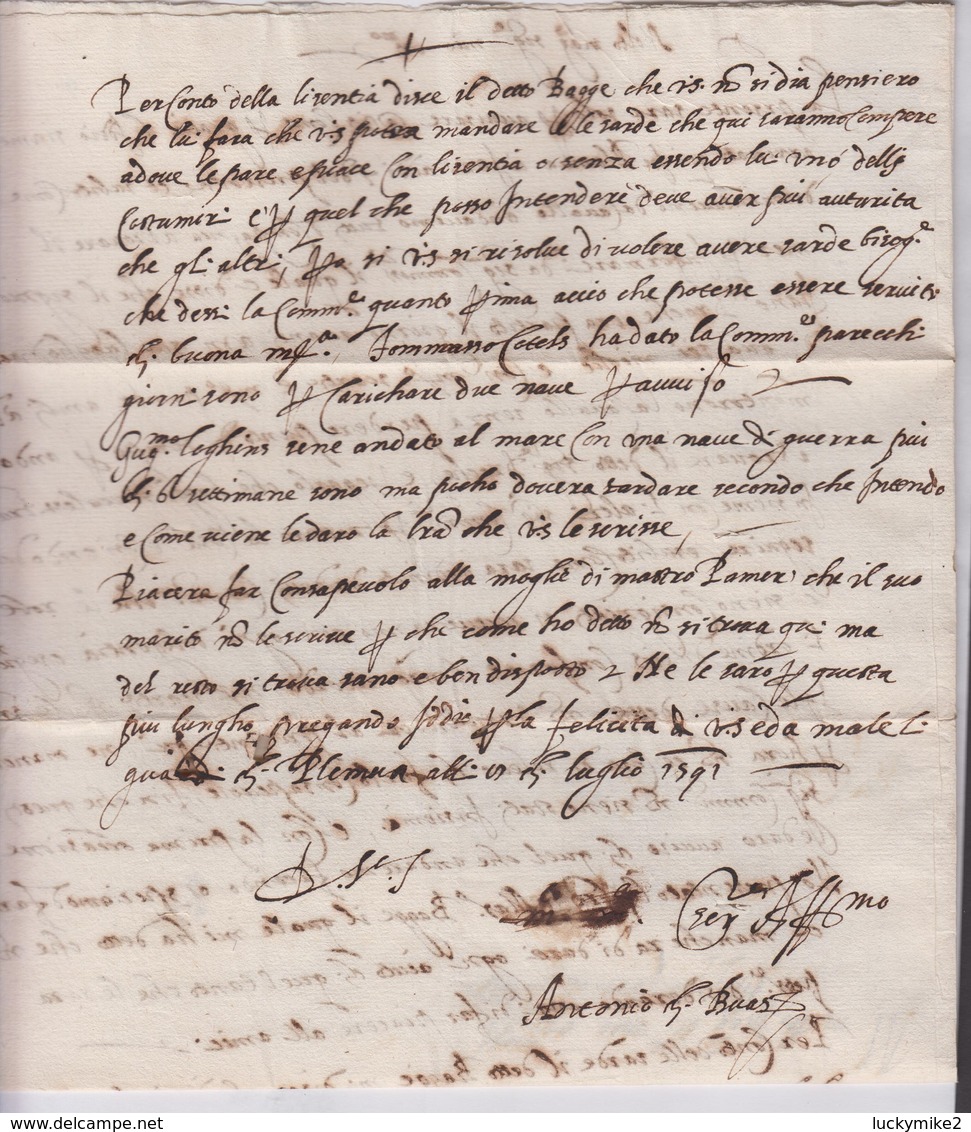 Per Conto della lisentia disce il detto Bagge che v.s. nō si dia pensiero
che lui fara che v.s potra mandare le sarde che qui saranno Compere
adove le pare e piace Con lisentia o senza essendo lui uno delli
Costumiri e ꝑ quel che posso Intendere deve aver piu auturita
che gli altri, ꝑo si v.s si risolve di volere avere sarde bisogᵃ
che dessi la Commᵉ quanto ꝑima accio che potesse essere servito
di buona mꝗᵃ. Tommasso Cotels ha dato la Commᵉ parecchi
giorni sono ꝑ Carichare due nave ꝑ avviso
Gugᵐᵒ Coghins sene andato al mare Con una nave di guerra piu
di 6 settimane sono ma pocho dovera tardare secondo che Intendo
e Come viene le daro la lrā che v.s le scrisse,
Piacera far Consapevolo alla moglie di mastro Pamer che il suo
marito nō le scrive ꝑ che come ho detto nō si trova qui ma
del resto si trova sano e ben disposto Ne le saro ꝑ questa
piu lungho pregando Iddio ꝑ la felicita di v.s e da male l.
guardi di Plemua alli di luglio 1591
D. V. S
Serᵛᵉ Affᵐᵒ
Antonio di
luckymike2